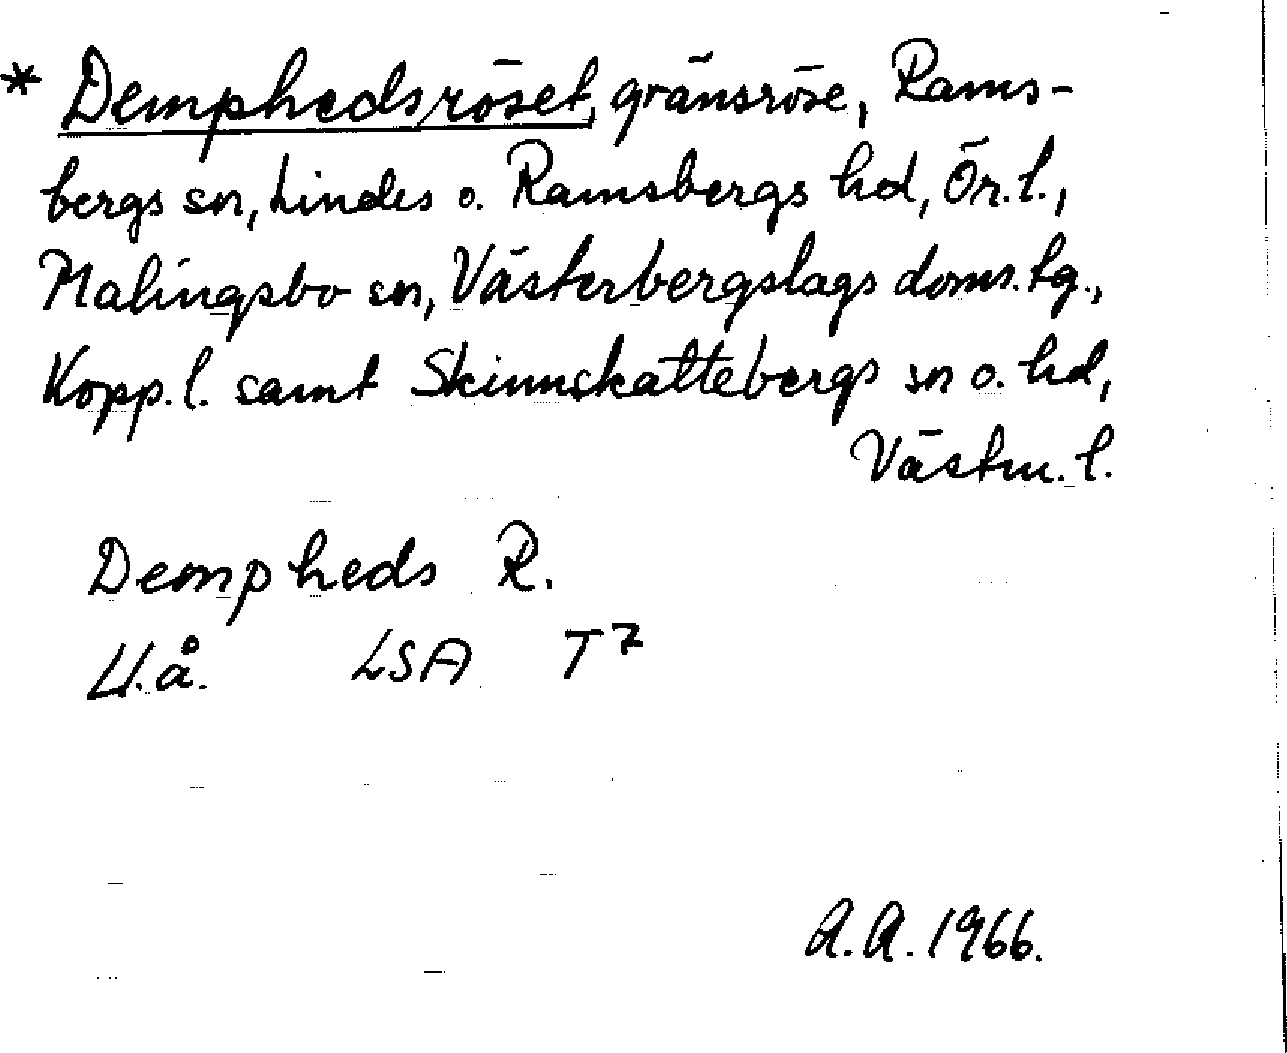 * Demphedsröset, gränsröse, Rams-
bergs sn, Lindes o. Ramsbergs hd, Ör. l.,
Malingsbo sn, Västerbergslags doms. tg.,
Kopp. l. samt Skinnskattebergs sn o. hd,
Västm. l.
Dempheds R.
U.å. LSA T 7
A.A. 1966.